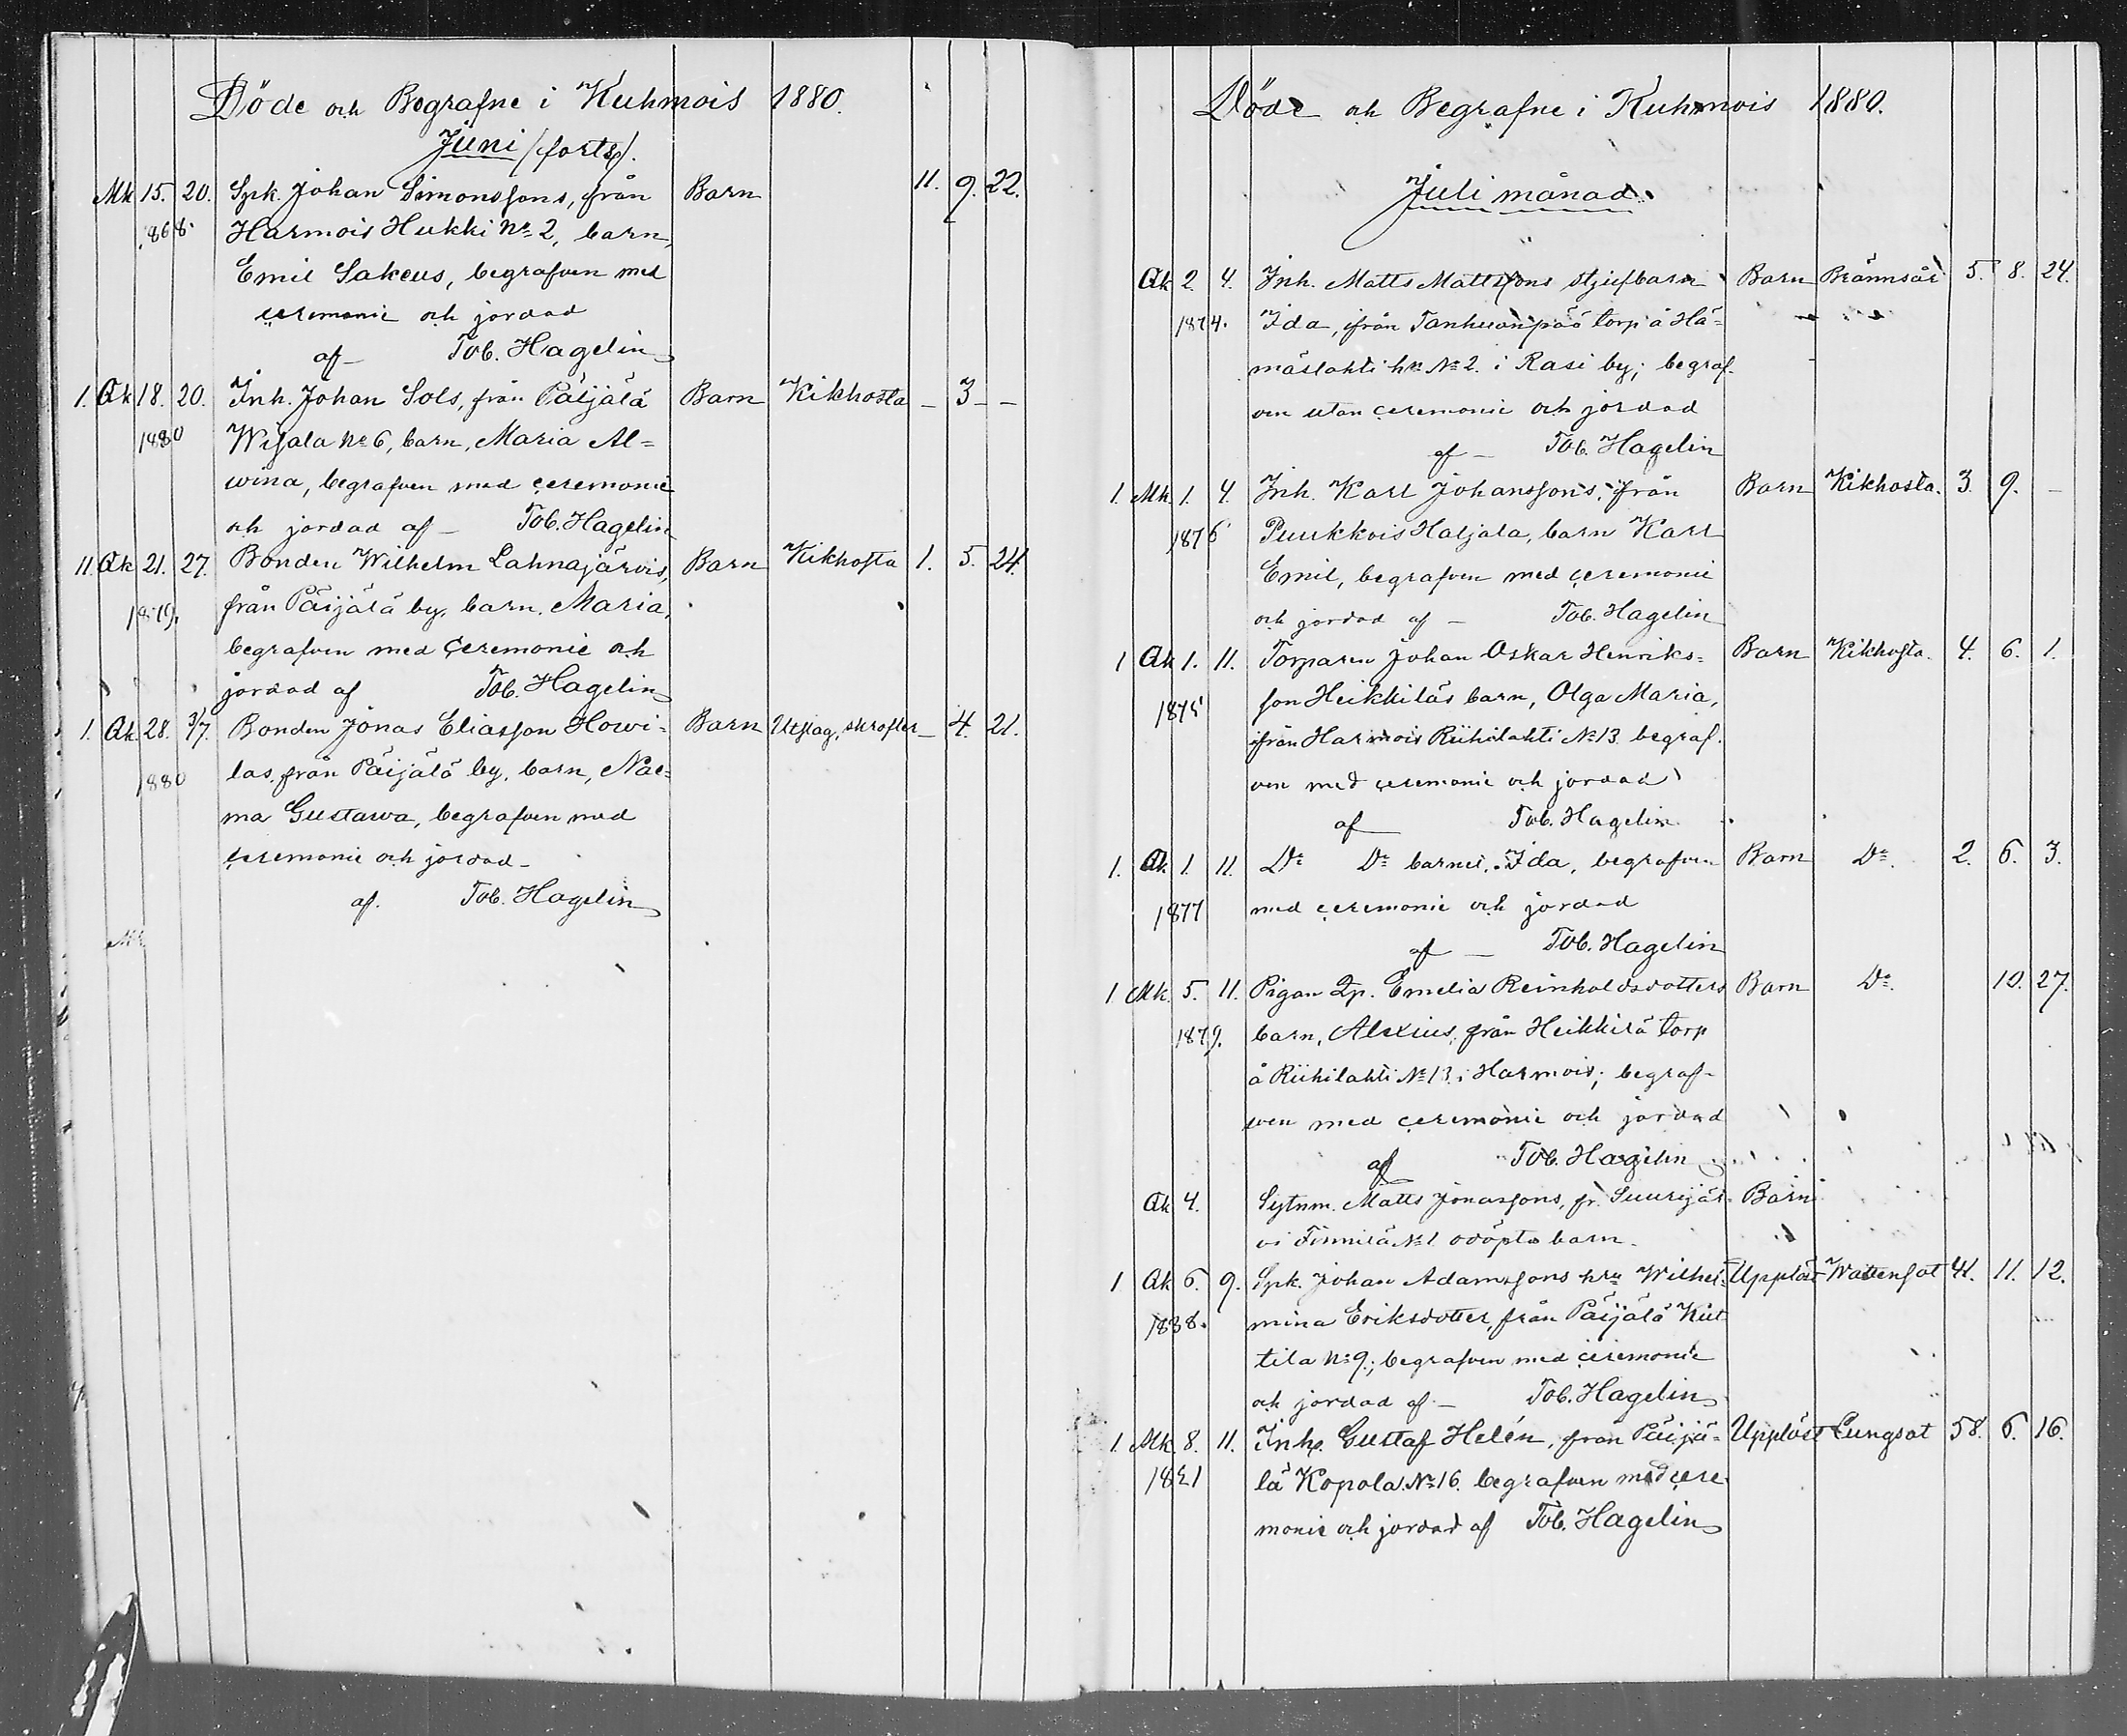 Döde och Begrafne i Kuhmois 1880.
Juni (forts).
Mk 15. 20. Spk. Johan Simonssons, från Barn 11. 9. 22.
1868. Harmois Hukki No 2, barn,
Emil Sakeus, begrafven med
ceremonie och jordad
af — Tob. Hagelin
1. Qk 18. 20. Inh. Johan Sols, från Päijälä Barn Kikhosta — 3 — —
1880 Wisala No 6, barn, Maria Al=
wina, begrafven med ceremonie
och jordad af — Tob. Hagelin
11. Qk 21. 27. Bonden Wilhelm Lahnajärvis, Barn Kikhosta 1. 5. 24.
1879. från Päijälä by, barn, Maria,
begrafven med Ceremonie och
jordad af Tob. Hagelin
1. Qk. 28. 3/7. Bonden Jonas Eliasson Howi- Barn Utslag, skrofler — 4. 21.
1880 las, från Päijälä by, barn, Nae=
ma Gustawa, begrafven med
ceremonie och jordad —
af. Tob. Hagelin
Mk
Döde och Begrafne i Kuhmois 1880.
Juli månad.
Qk 2. 4. Inh. Matts Mattssons stjufbarn Barn Brännsår 5. 8. 24.
1874. Ida, ifrån Tanhuanpää torp å Hä=
mäslahti hn No 2. i Rasi by; begraf-
ven utan ceremonie och jordad
af — Tob. Hagelin
1. Mk. 1. 4. Inh. Karl Johanssons, från Barn Kikhosta. 3. 9. —
1876 Puukkois Haljala, barn Karl
Emil, begrafven med ceremonie
och jordad af — Tob. Hagelin
1 Qk 1. 11. Torparen Johan Oskar Henriks= Barn Kikhosta. 4. 6. 1.
1875 son Heikkiläs barn, Olga Maria,
ifrån Harmois Riihilahti No 13. begraf-
ven med ceremonie och jordad
af Tob. Hagelin
1. Qk. 1. 11. Do Do barnet, Ida, begrafven Barn Do. 2. 6. 3.
1877 med ceremonie och jordad
af — Tob. Hagelin
1 Mk. 5. 11. Pigan Qp. Emelia Reinholdsdotters Barn Do. 10. 27.
1879. barn, Alexius, från Heikkilä torp
å Riihilahti No 13 i Harmois; begraf-
ven med ceremonie och jordad
af Tob. Hagelin
Qk 4. Sytnm. Matts Jonassons, fr. Suurijär- Barn
vi Finnilä No 1 odöpta barn.
1 Qk 6. 9. Spk. Johan Adamssons hru Wilhel- Upplöst Wattensot 41. 11. 12.
1838. mina Eriksdotter, från Päijälä Kut
tila No 9; begrafven med ceremonie
och jordad af — Tob. Hagelin
1 Mk. 8. 11. Inh. Gustaf Helén, från Päijä= Upplöst Lungsot 58. 6. 16.
1821 lä Kopola No 16. begrafven med cere
monie och jordad af Tob. Hagelin